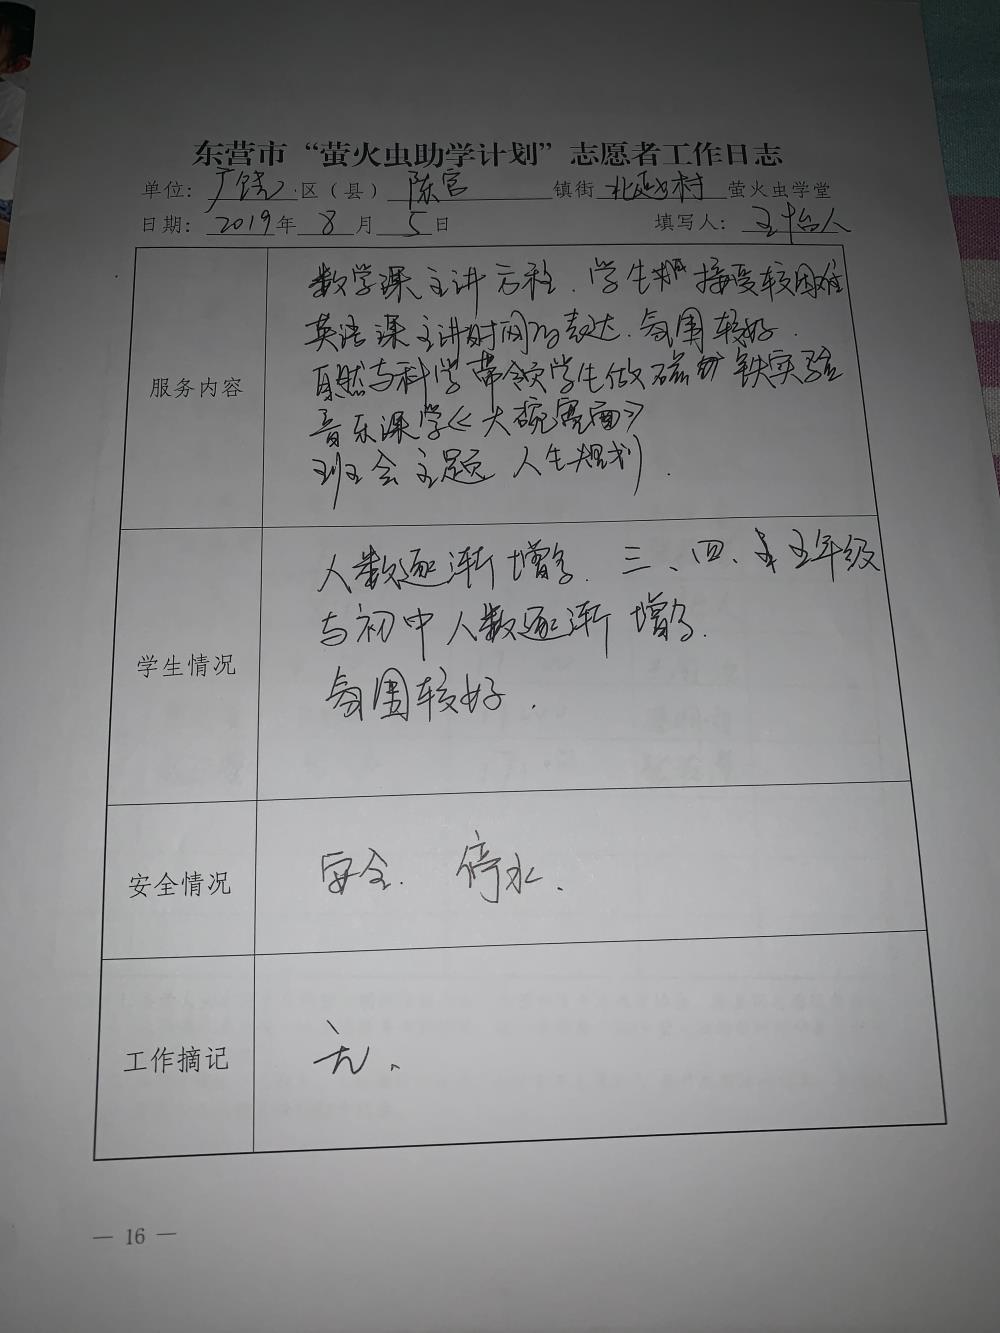 东营市“萤火虫助学计划”志愿者工作日志
单位：广饶 区（县） 陈官 镇街 村 萤火虫学堂
日期：2019年 8 月 5 日 填写人：
服务内容
数学课主讲方程．学生 接受较困难
英语课主讲时间的表达．氛围较好．
自然与科学带领学生做磁 铁实验
音乐课学《大碗宽面》
班会主题 人生规划．
学生情况
人数逐渐增多．三、四、五年级
与初中人数逐渐增多．
氛围较好．
安全情况
安全． 停水．
工作摘记
无、
— 16 —